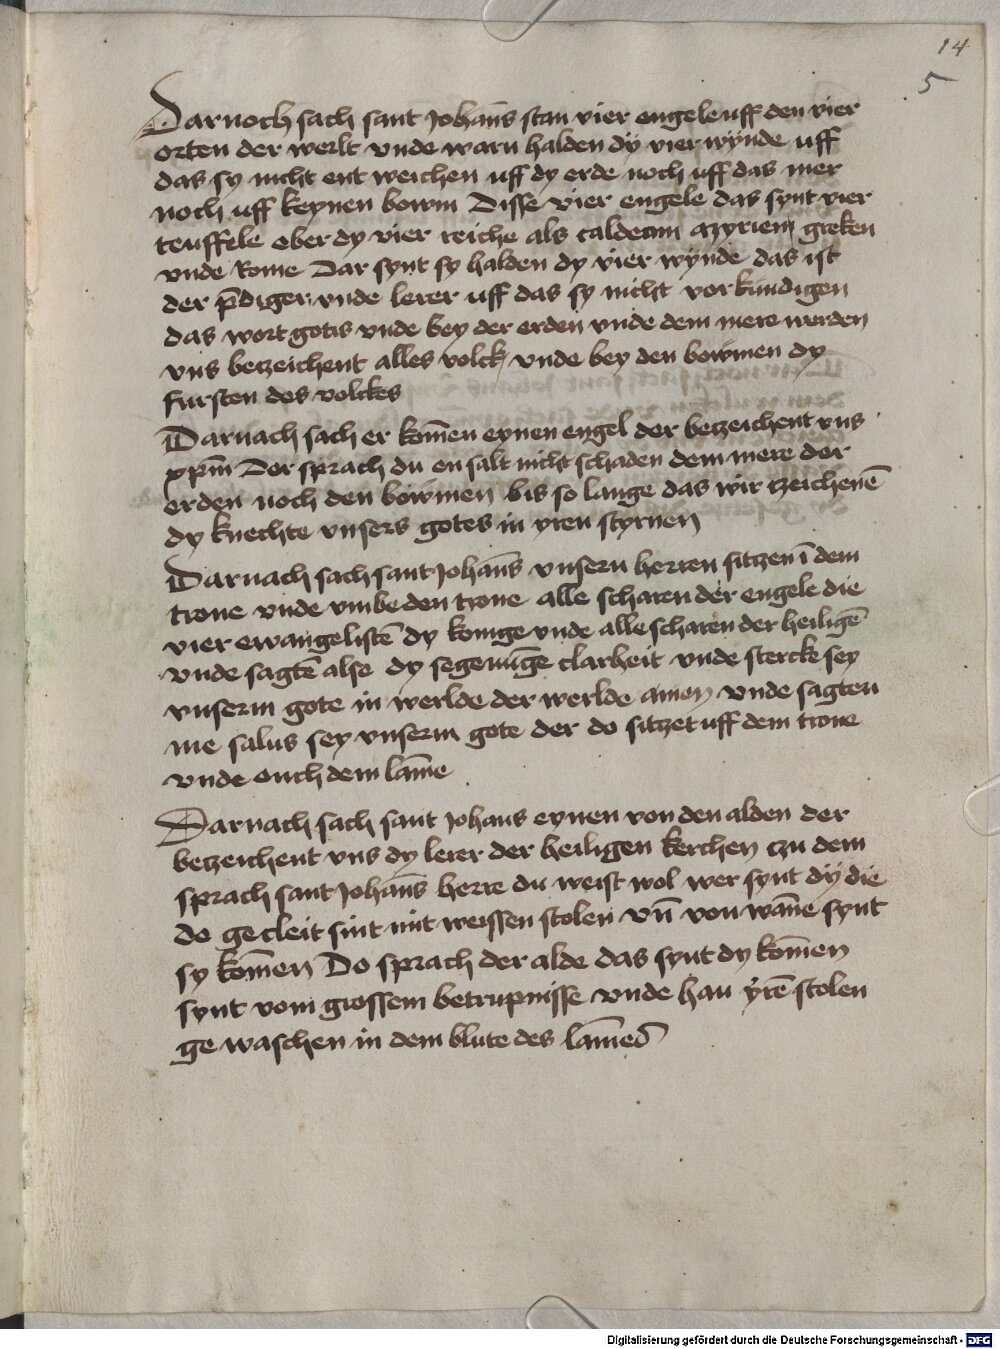 14
5
Darnoch sach sant Johañs stan vier engele uff den vier
orten der werlt vnde warn halden dÿ vier wÿnde uff
das sy nicht ent weichen uff dy erde noch uff das mer
noch uff keynen bowm Disse vier engele das synt vier
teuffele ober dy vier reiche als caldeam azyriem greken
vnde Rome Dar synt sy halden dy vier wÿnde das ist
der p̄diger vnde lerer uff das sy nicht vorkundigen
das wort gotis vnde bey der erden vnde dem mere werden
vns betzeichent alles volck vnde bey den bowmen dy
fursten des volckes
Darnach sach er kom̄en eynen engel der betzeichent vns
xp̄m Der sprach du en salt nicht schaden dem mere der
erden noch den bowmen bis so lange das wir tzeichenē
dy knechte vnsers gotes in yren styrnen
Darnach sach sant Johañs vnsern herren sitzen ī dem
trone vnde vmbe den trone alle scharen der engele die
vier ewangelistē dy konige vnde alle scharen der heiligē
vnde sagtē alse dy segenūge clarheit vnde stercke sey
vnserm gote in werlde der werlde amen vnde sagten
me salus sey vnserm gote der do sitzet uff dem trone
vnde ouch dem lam̄e
Darnach sach sant Johans eynen von den alden der
betzeichent vns dy lerer der heiligen kerchen czu dem
sprach sant Johañs herre du weist wol wer synt dÿ die
do gecleit sint mit weissen stolen vn̄ von wañe synt
sy kom̄en Do sprach der alde das synt dy kom̄en
synt vom grossem betrupnisse vnde han ÿrē stolen
ge waschen in dem blute des lam̄es
Digitalisierung gefördert durch die Deutsche Forschungsgemeinschaft - DFG